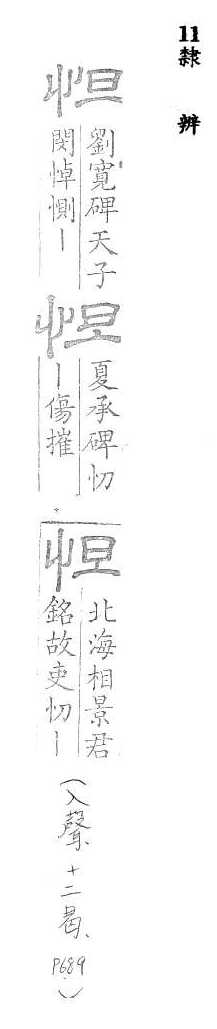 11隸辨
怛
劉寬碑天子
閔悼惻｜
怛
夏承碑忉
｜傷摧
怛
北海相景君
銘故吏忉｜
(入聲、十二曷、P689)